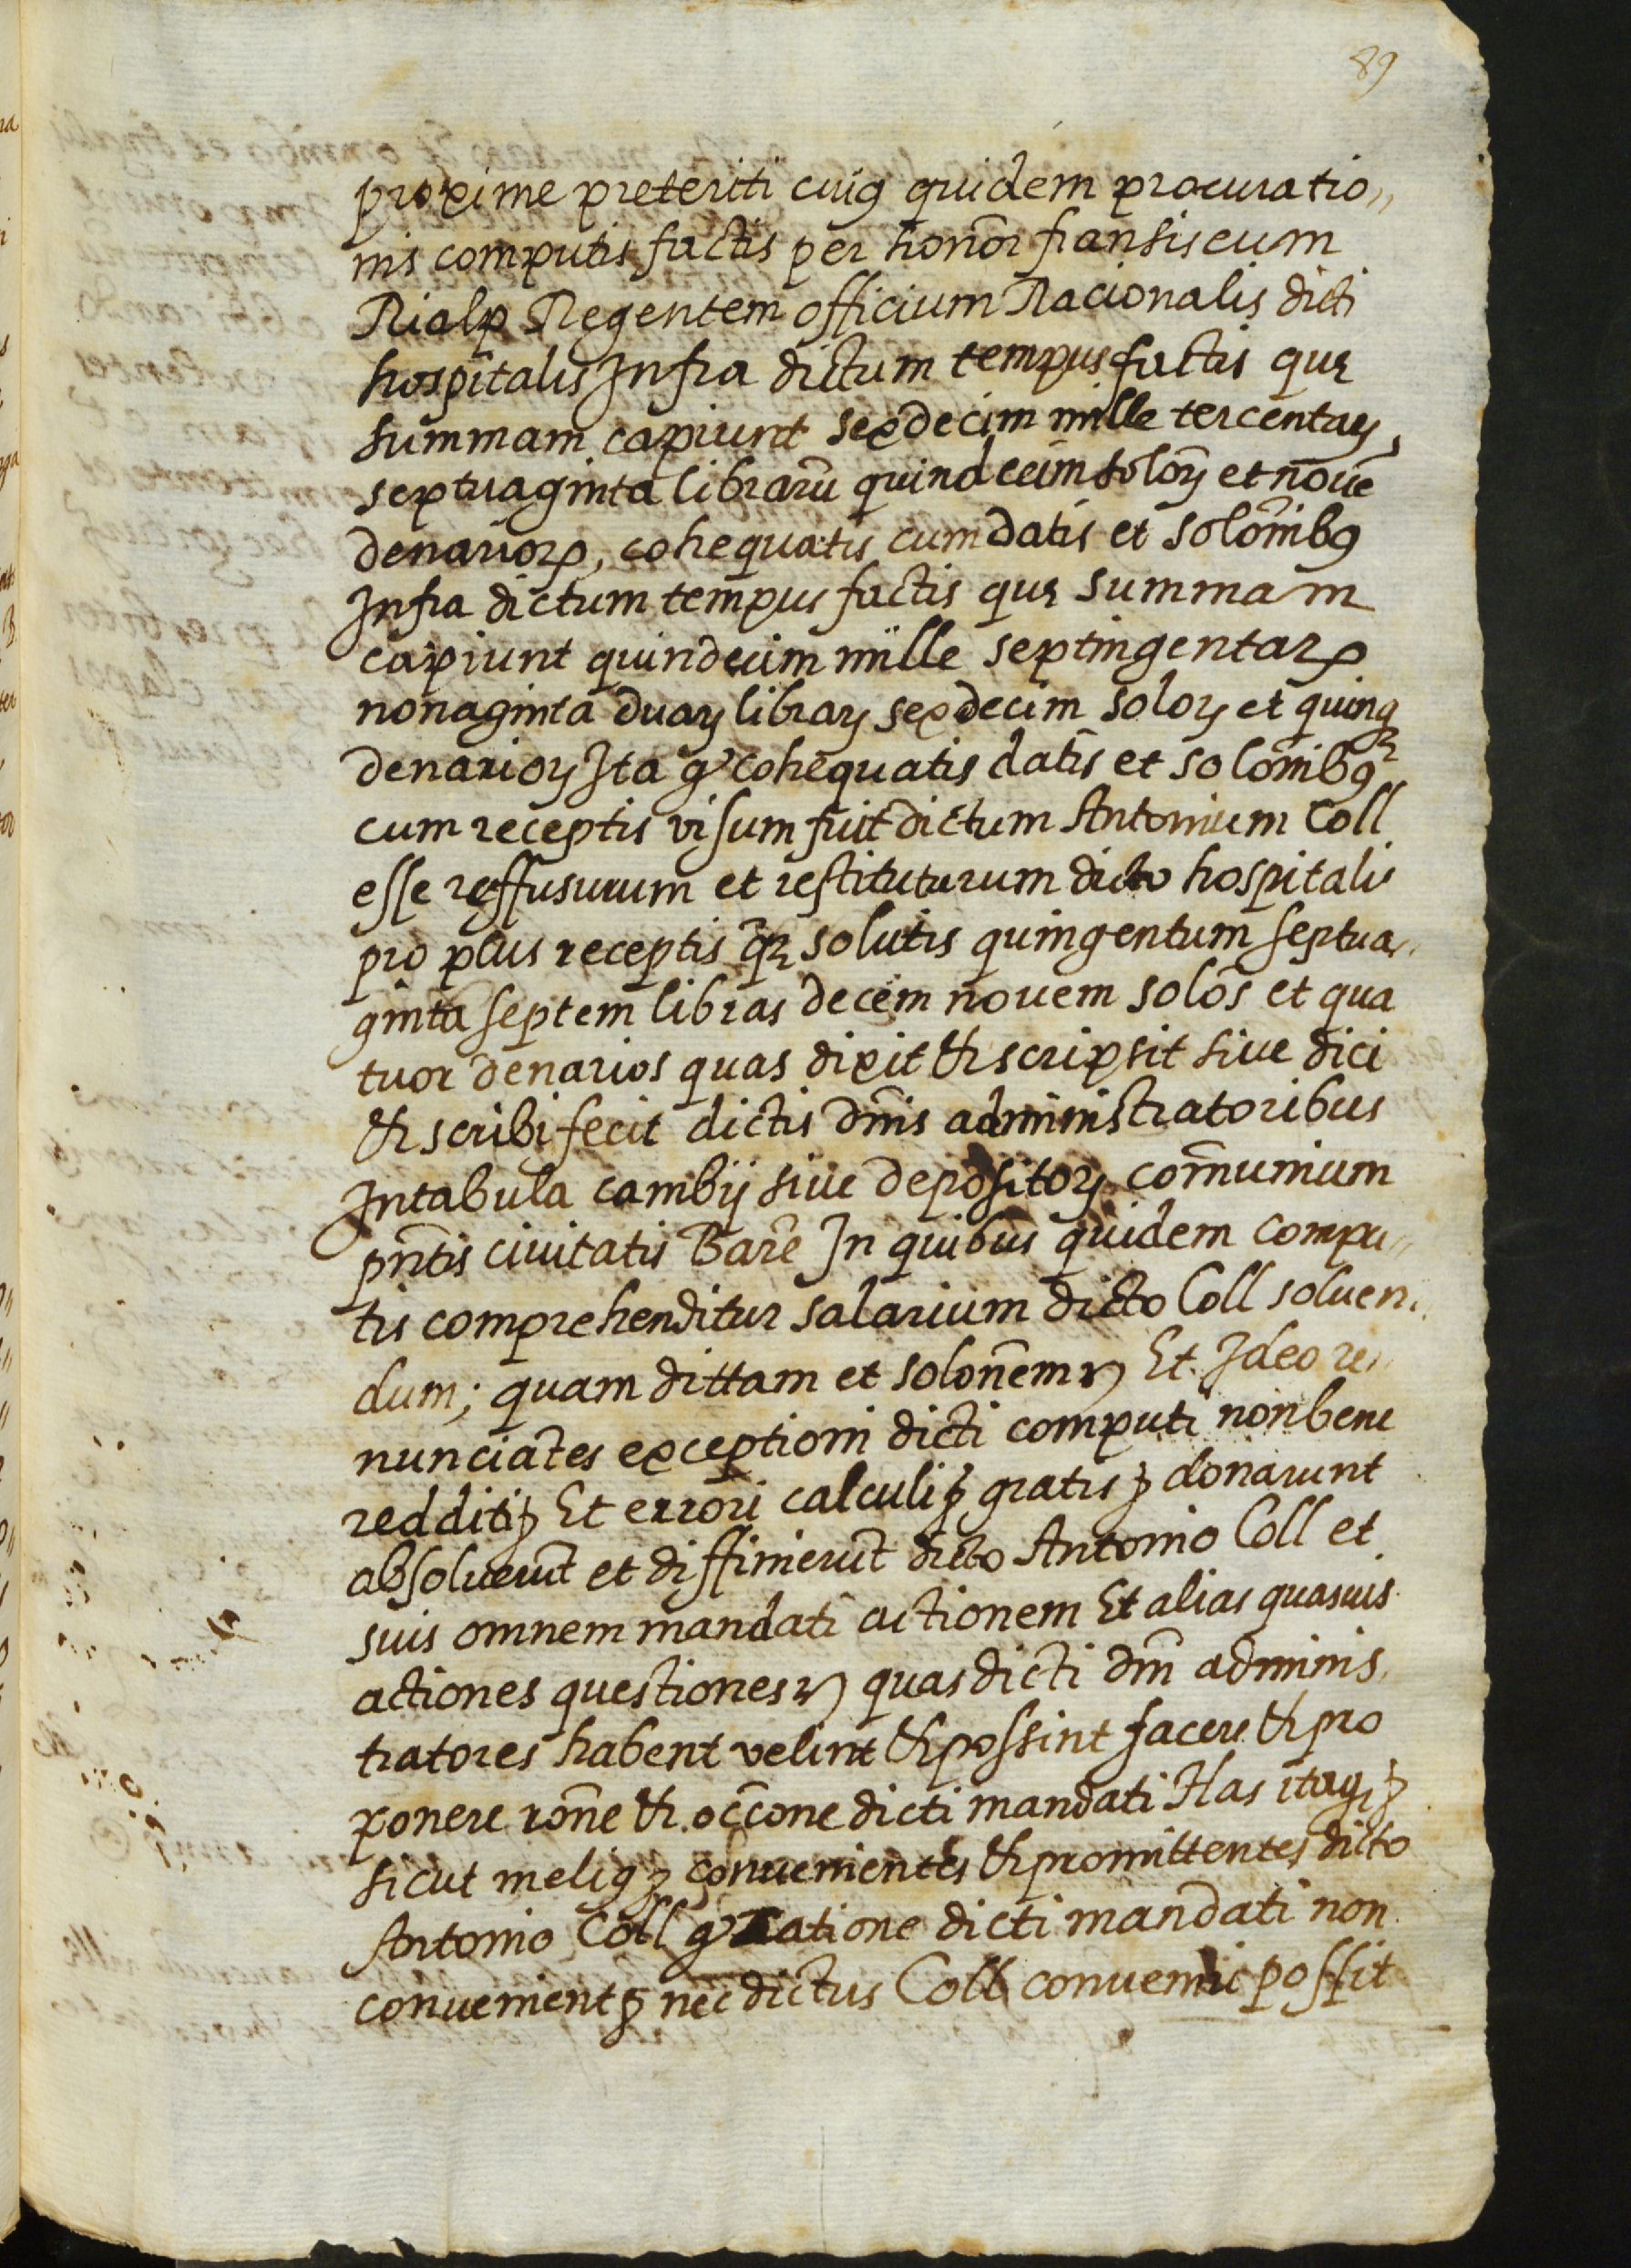 89
proxime preteriti cuiꝯ quidem procuratio„
nis computis factis per honor̄ fransiscum
Rialp Regentem officium Racionalis dicti
hospitalis Infra dictum tempus factis que
summam capiunt sexdecim mille tercentaꝝ
septuaginta librarū quindecim soloꝝ et nouē
denarioꝝ, cohequatis cum datis et solōnibꝯ
Infra dictum tempus factis que summam
capiunt quindecim mille septingentaꝝ
nonaginta duaꝝ libraꝝ sexdecim soloꝝ et quinqꝫ
denarioꝝ Ita ꝙ cohequatis datis et solōnibꝯ
cum receptis visum fuit dictum Antonium Coll
esse reffusurum et restituturum dicto hospitali
pro plus receptis qꝫ solutis quingentum septua„
ginta septem libras decem nouem solōs et qua
tuor denarios quas dixit & scripsit siue dici
& scribi fecit dictis dn̄is administratoribus
In tabula cambij siue depositoꝝ com̄unium
pn̄tis ciuitatis Barē In quibus quidem compu„
tis comprehenditur salarium dicto Coll soluen„
dum; quam dittam et solōnem ꝛ Et Ideo re„
nunciātes exceptioni dicti computi non bene
redditi ꝫ Et errori calculi ꝫ gratis ꝫ donarunt
absoluerūt et diffinierūt dicto Antonio Coll et
suis omnem mandati actionem Et alias quasuis
actiones questiones ꝛ quas dicti dn̄i adminis„
tratores habent velint & possint facere & pro
ponere rōne & occōne dicti mandati Has itaqꝫ ꝫ
sicut meliꝯ ꝫ conuenientes & promittentes dicto
Antonio Coll ꝙ ratione dicti mandati non
conuenient ꝫ nec dictus Coll conueniri possit